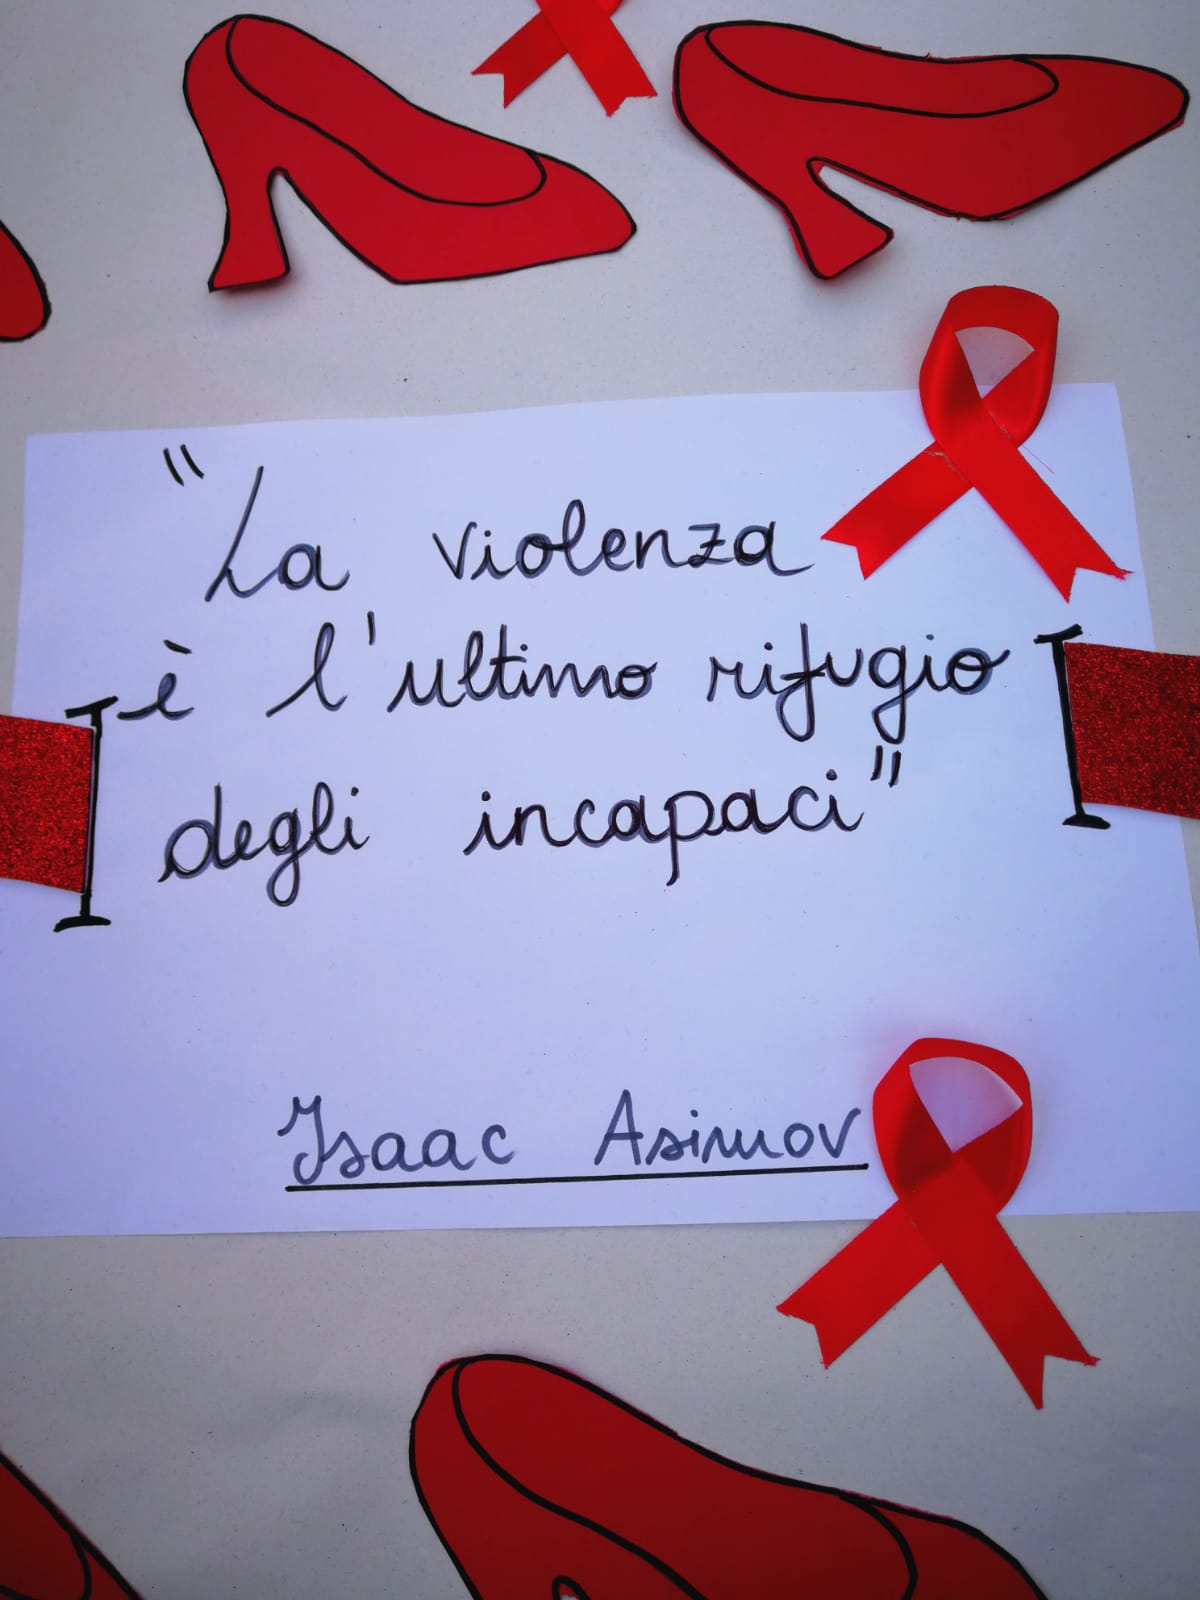 "La violenza
è l'ultimo rifugio
degli incapaci"
Isaac Asimov